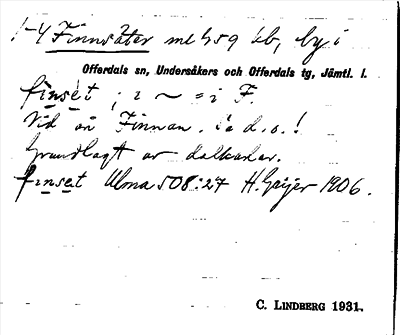 1-4 Finnsäter me 459 bb, by i
Offerdals sn, Undersåkers och Offerdals tg, Jämtl. l.
finset ; i ~ = i F.
Vid ån Finnan.
Grundlagt av dalkarlar.
finset Ulma 508:27 H. Geijer 1906.
C. LINDBERG 1931.